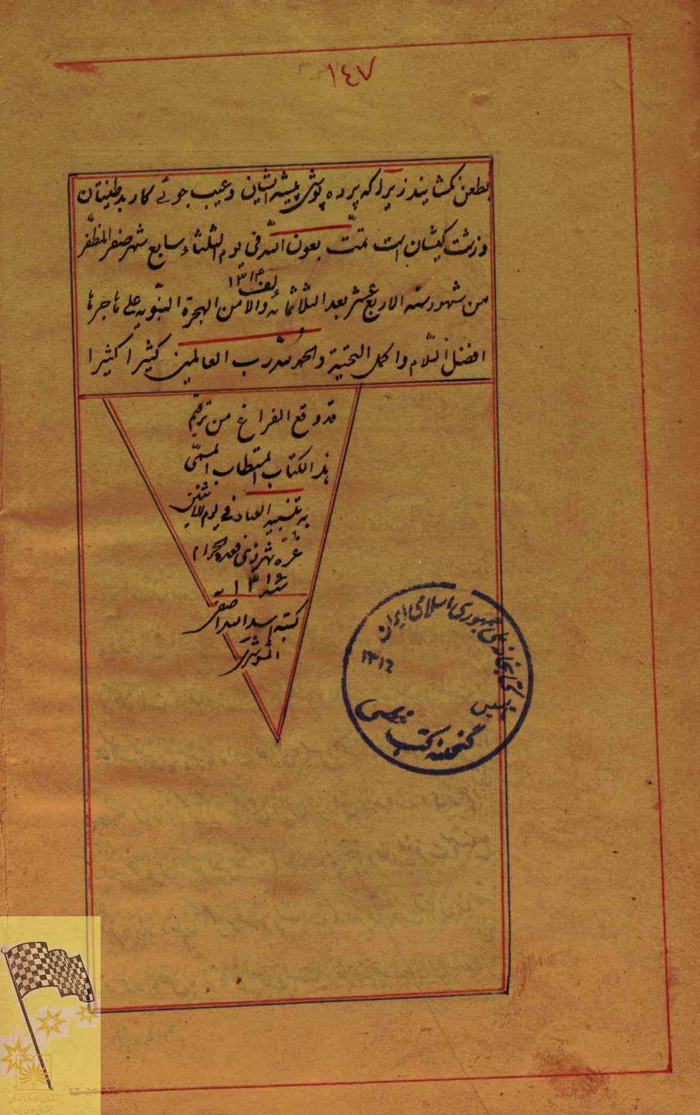 ۱۴۷
بطعن نگشایند زیرا که پرده پوشی پیشه ایشان و عیب جوئے کار بد طینتان
و زشت کیشان است تمت بعون الله فی یوم الثلثاء سابع شهر صفر المظفر
۱۳۱۴
من شهور سنه الاربع عشر بعد الثلاثمائه والالف من الهجرة النبویه علی هاجرها
افضل السلام واکمل التحیة والحمد لله رب العالمین کثیرا کثیرا
قد وقع الفراغ من ترقیم
هذا الکتاب المستطاب المسمی
به تنبیه العباد فی یوم الاثنین
غره شهر ذی قعده الحرام
کتبه اسد الله
کتابخانه ملی جمهوری اسلامی ایران
گنجینه کتب